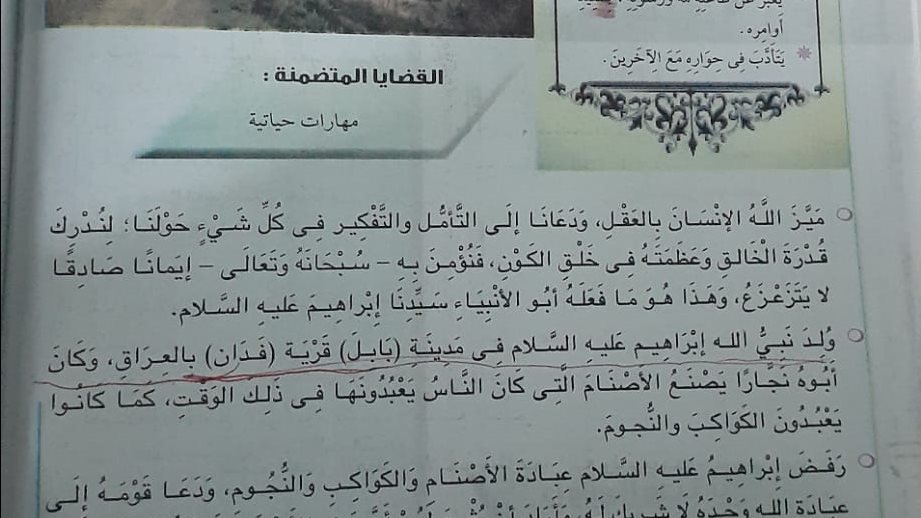 يُعَبِّرَ عَنْ طَاعَتِهِ لله وَرَسُولِهِ،
أَوامِره.
يَتَأَدَّبَ فِى حِوَارِهِ مَعَ الآخَرِينَ.
القضايا المتضمنة :
مهارات حياتية
مَيَّزَ اللَّهُ الإنْسَانَ بِالعَقْلِ، وَدَعَانَا إلَى التَّأمُّل والتَّفْكِير فِى كُلِّ شَىْءٍ حَوْلَنَا؛ لِنُدْرِكَ
قُدْرَةَ الْخَالقِ وَعَظَمَتَهُ فِى خَلْقِ الكَوْنِ، فَنُؤْمِنَ بِه – سُبْحَانَهُ وَتَعَالَى – إيَمانًا صَادِقًا
لا يَتَزَعْزَعُ، وَهَذَا هُوَ مَا فَعَلَهُ أبُو الأنْبِيَاءِ سَيِّدِنَا إبْراهِيمَ عَليهِ السَّلام.
وُلِدَ نَبِىُّ الله إبْرَاهِيم عَليهِ السَّلام فِى مَدِينَةِ (بَابِلَ) قَرْيَة (فَدَان) بِالعِرَاقِ، وَكَانَ
أَبُوهُ نَجَّارًا يَصْنَعُ الأصْنَامَ الَّتِى كَانَ النَّاسُ يَعْبُدُونَهَا فِى ذَلِكَ الوَقْتِ، كَمَا كَانُوا
يَعْبُدُونَ الكَوَاكِبَ والنُّجومَ.
رَفَضَ إبْرَاهِيمُ عَليهِ السَّلام عِبَادَةَ الأَصْنَامِ وَالكَوَاكِبِ وَالنُّجُومِ، وَدَعَا قَوْمَهُ إلَى
عِبَادَة الله وَحْدَهُ لَا شَريكَ لَهُ